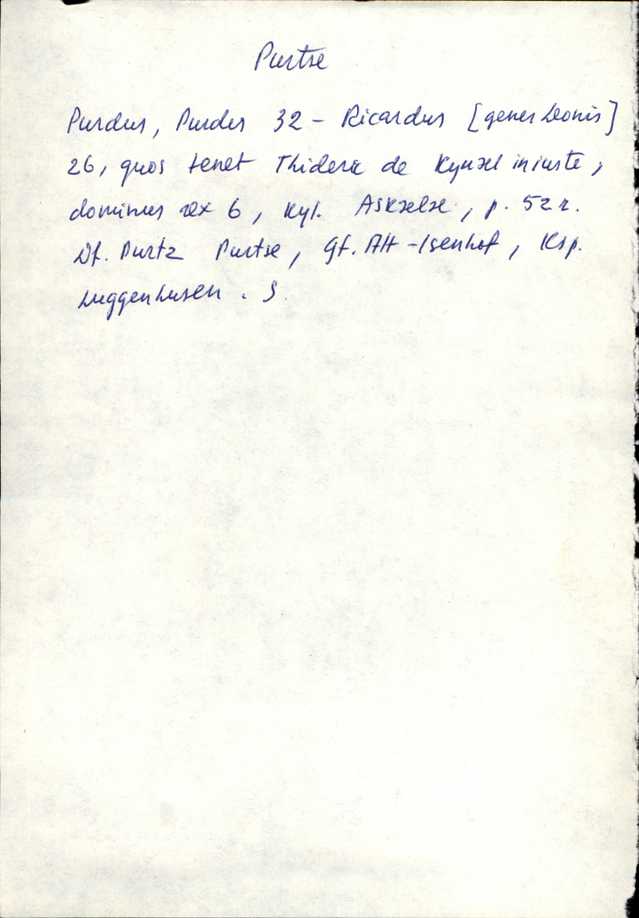 Purtse
Purdus, Purdis 32 – Ricardus [gener Leonis]
26, quos tenet Thideric de Kyuæl iniuste,
dominus rex 6, Kyl. Askælæ, p. 52 r.
Df. Purtz Purtse, Gf. Alt-Isenhof, Ksp.
Luggenhusen. J.